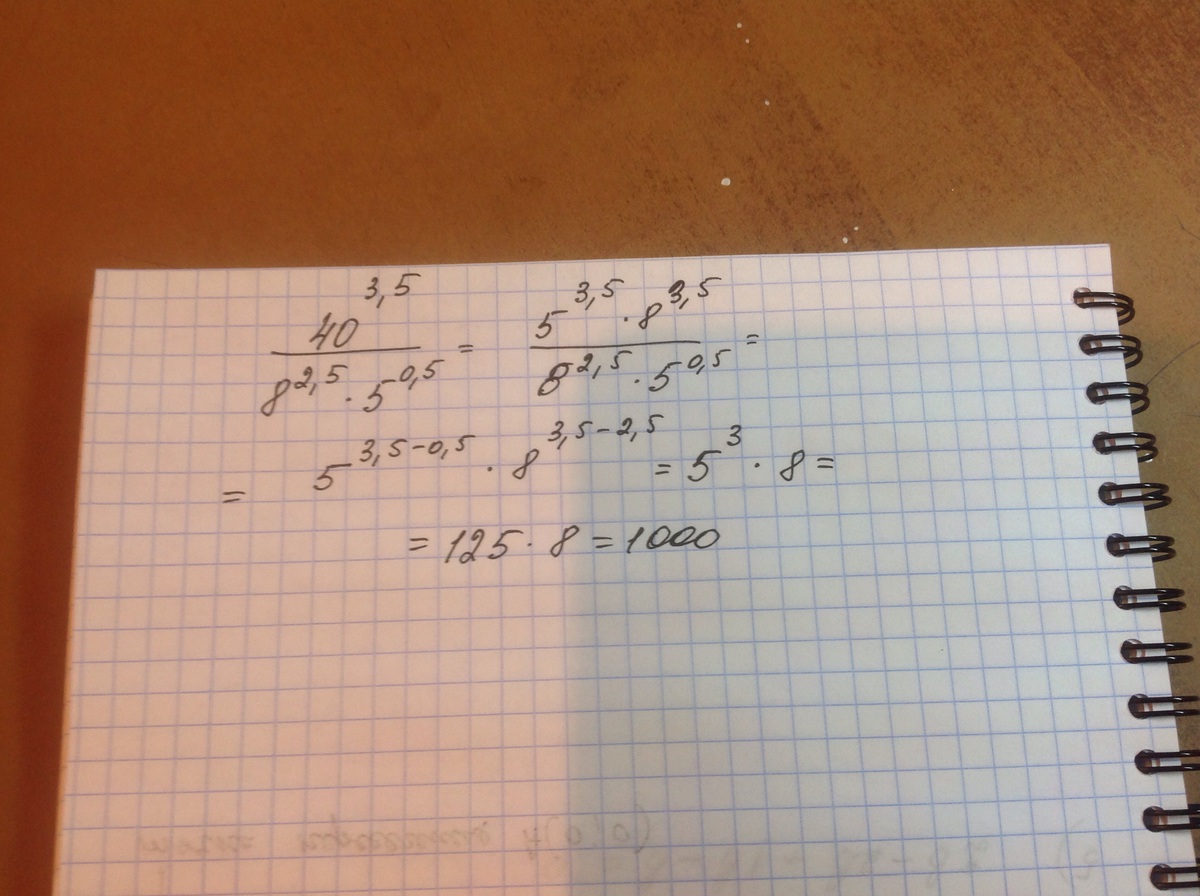 40^3,5 / 8^2,5 · 5^0,5 = 5^3,5 · 8^3,5 / 8^2,5 · 5^0,5 =
= 5^3,5-0,5 · 8^3,5-2,5 = 5^3 · 8 =
= 125 · 8 = 1000